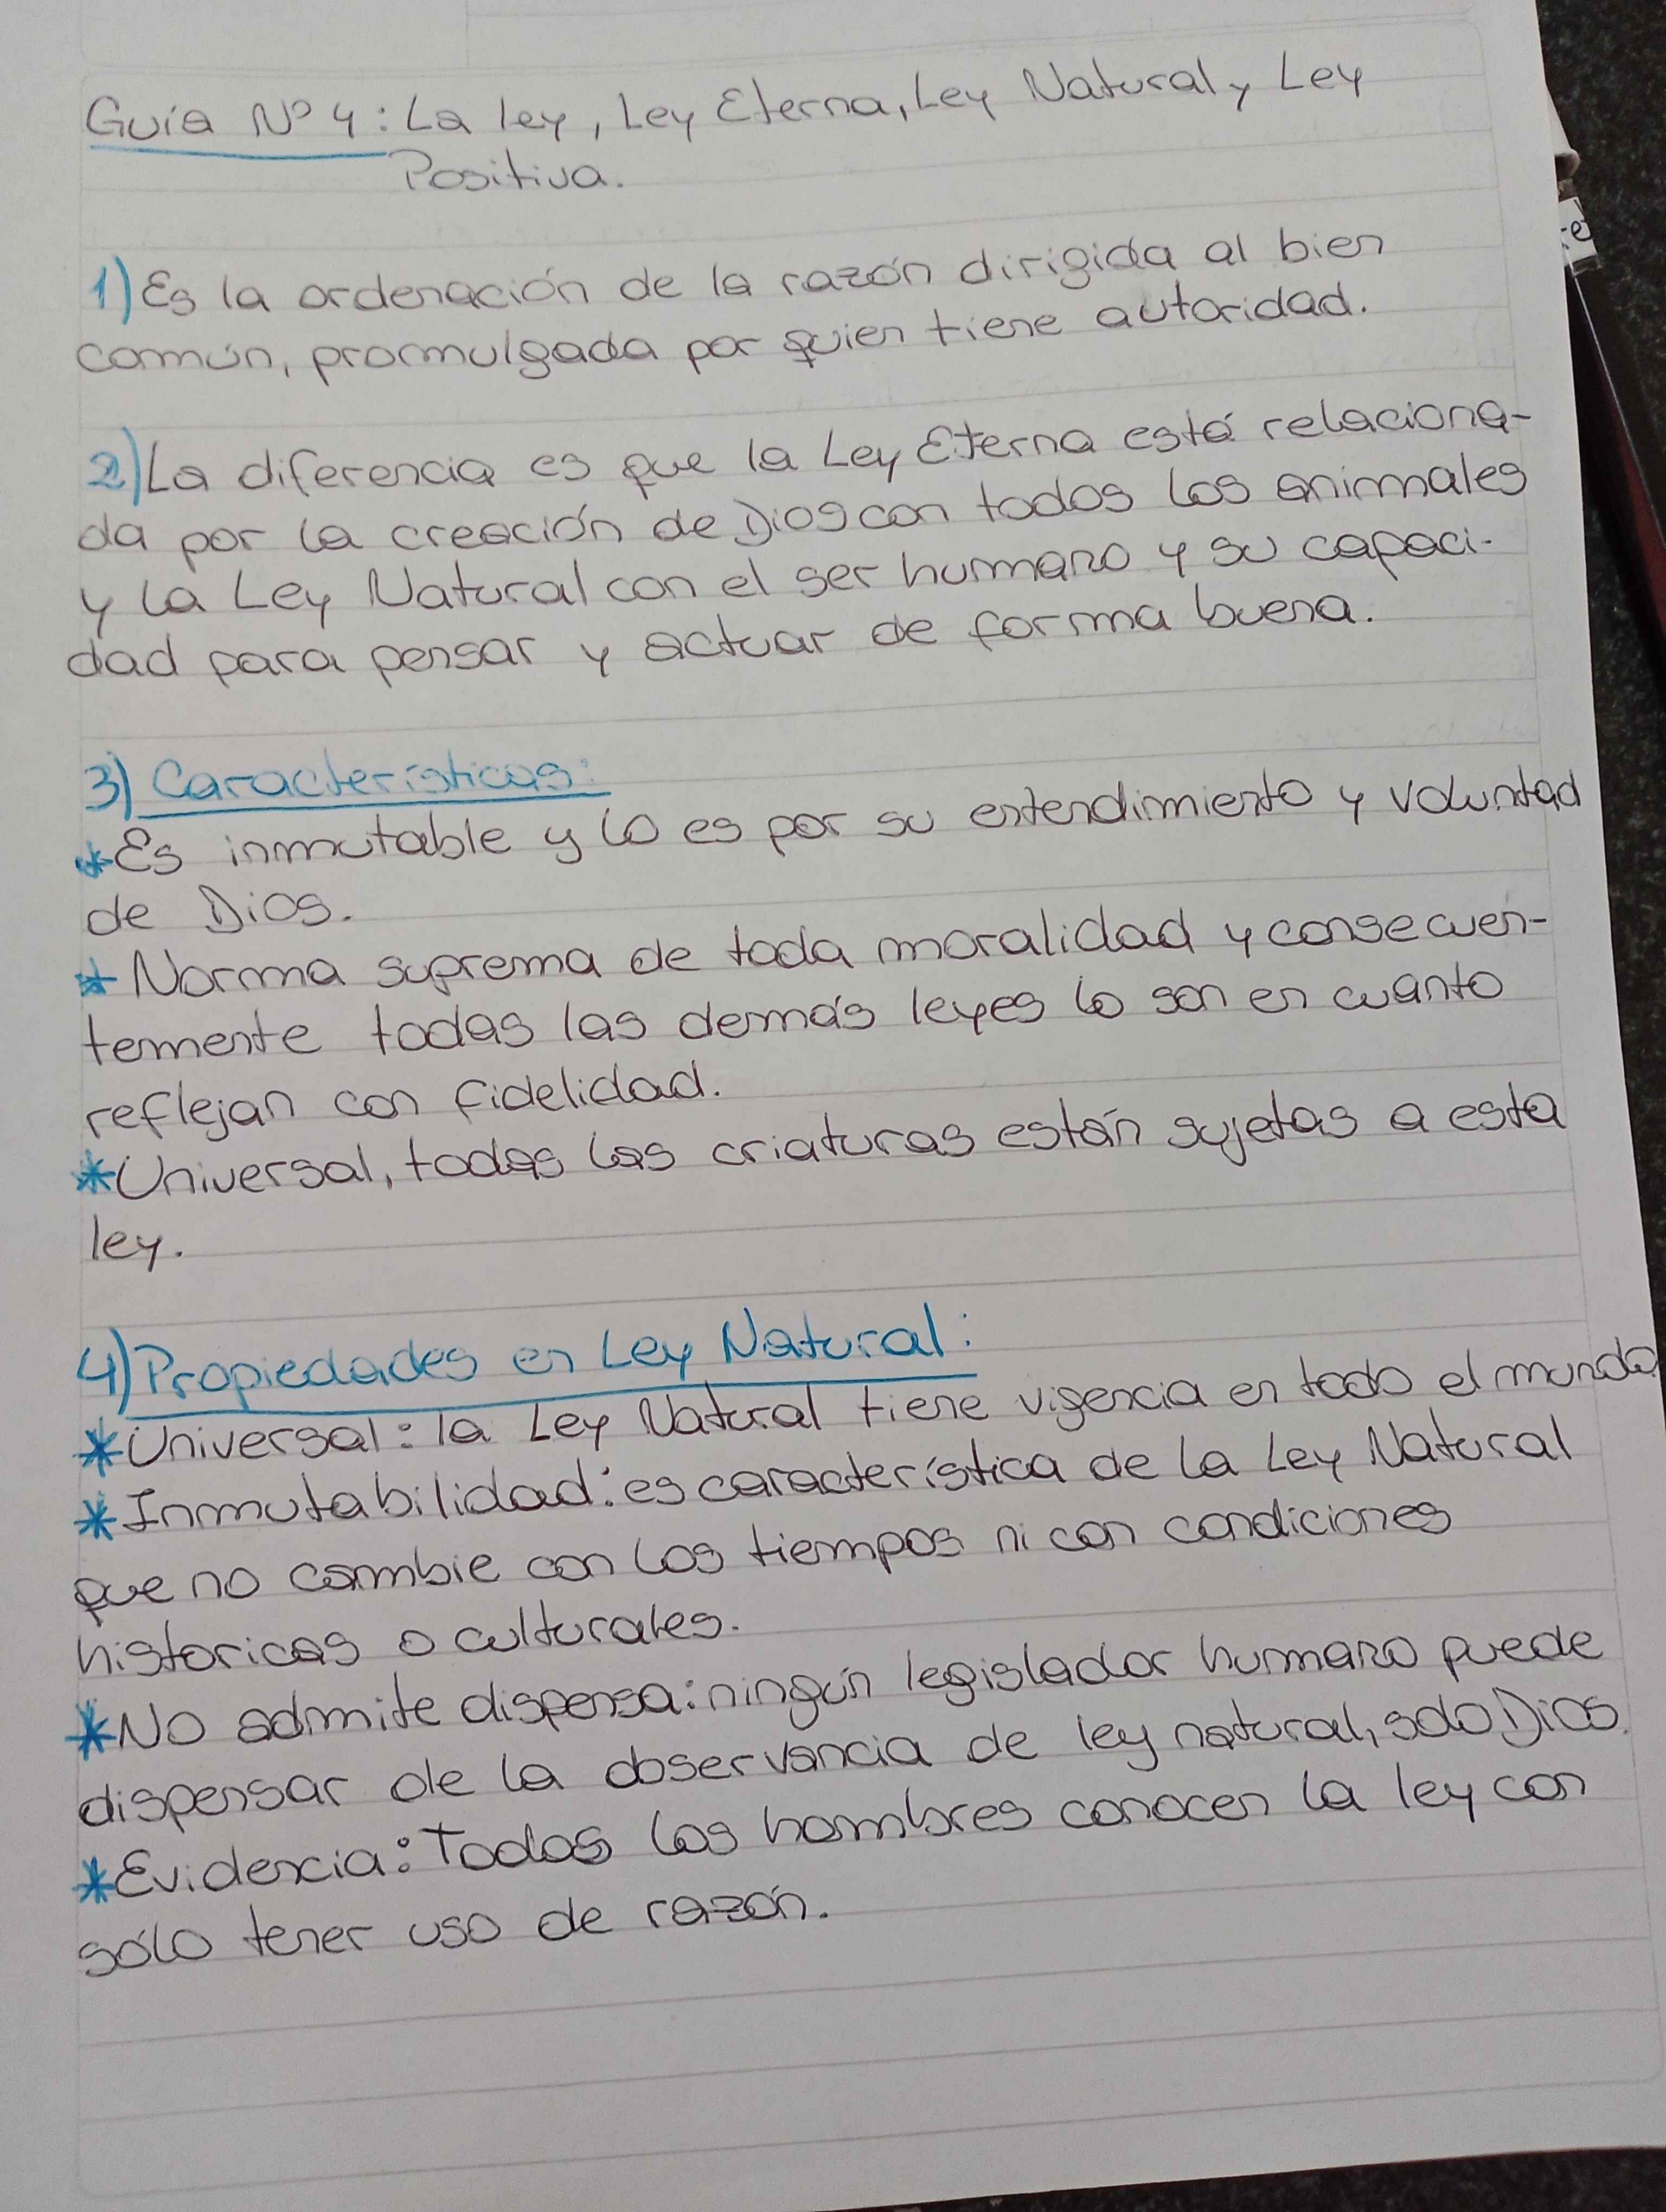 Guía N° 4: La ley, Ley Eterna, Ley Natural y Ley
Positiva.
1) Es la ordenación de la razón dirigida al bien
común, promulgada por quien tiene autoridad.
2) La diferencia es que la Ley Eterna está relaciona-
da por la creación de Dios con todos los animales
y la Ley Natural con el ser humano y su capaci-
dad para pensar y actuar de forma buena.
3) Características:
* Es inmutable y lo es por su entendimiento y voluntad
de Dios.
* Norma suprema de toda moralidad y consecuen-
temente todas las demás leyes lo son en cuanto
reflejan con fidelidad.
* Universal, todas las criaturas están sujetas a esta
ley.
4) Propiedades en Ley Natural:
* Universal: la Ley Natural tiene vigencia en todo el mundo
* Inmutabilidad: es característica de la Ley Natural
que no cambie con los tiempos ni con condiciones
historicas o culturales.
* No admite dispensa: ningún legislador humano puede
dispensar de la observancia de ley natural, solo Dios.
* Evidencia: Todos los hombres conocen la ley con
sólo tener uso de razón.